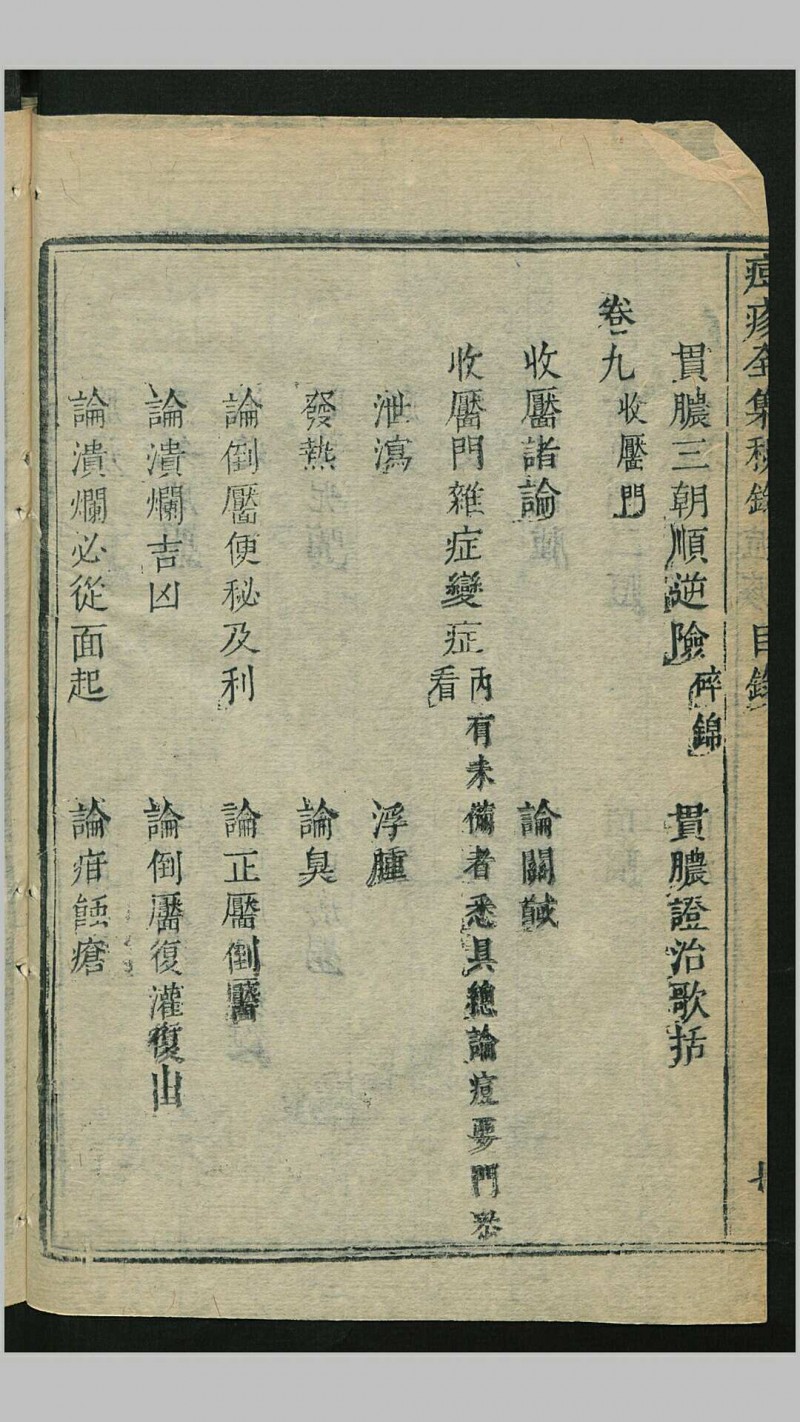 痘疹全集秘錄 目錄
貫膿三朝順逆險 碎錦 貫膿證治歌括
卷九 收靨門
收靨諸論 論關
收靨門雜症變症 內有未備者悉具總論痘要門叅看
泄瀉 浮腫
發熱 論臭
論倒靨便秘及利 論正靨倒靨
論潰爛吉凶 論倒靨復灌復出
論潰爛必從面起 論疳蝕瘡